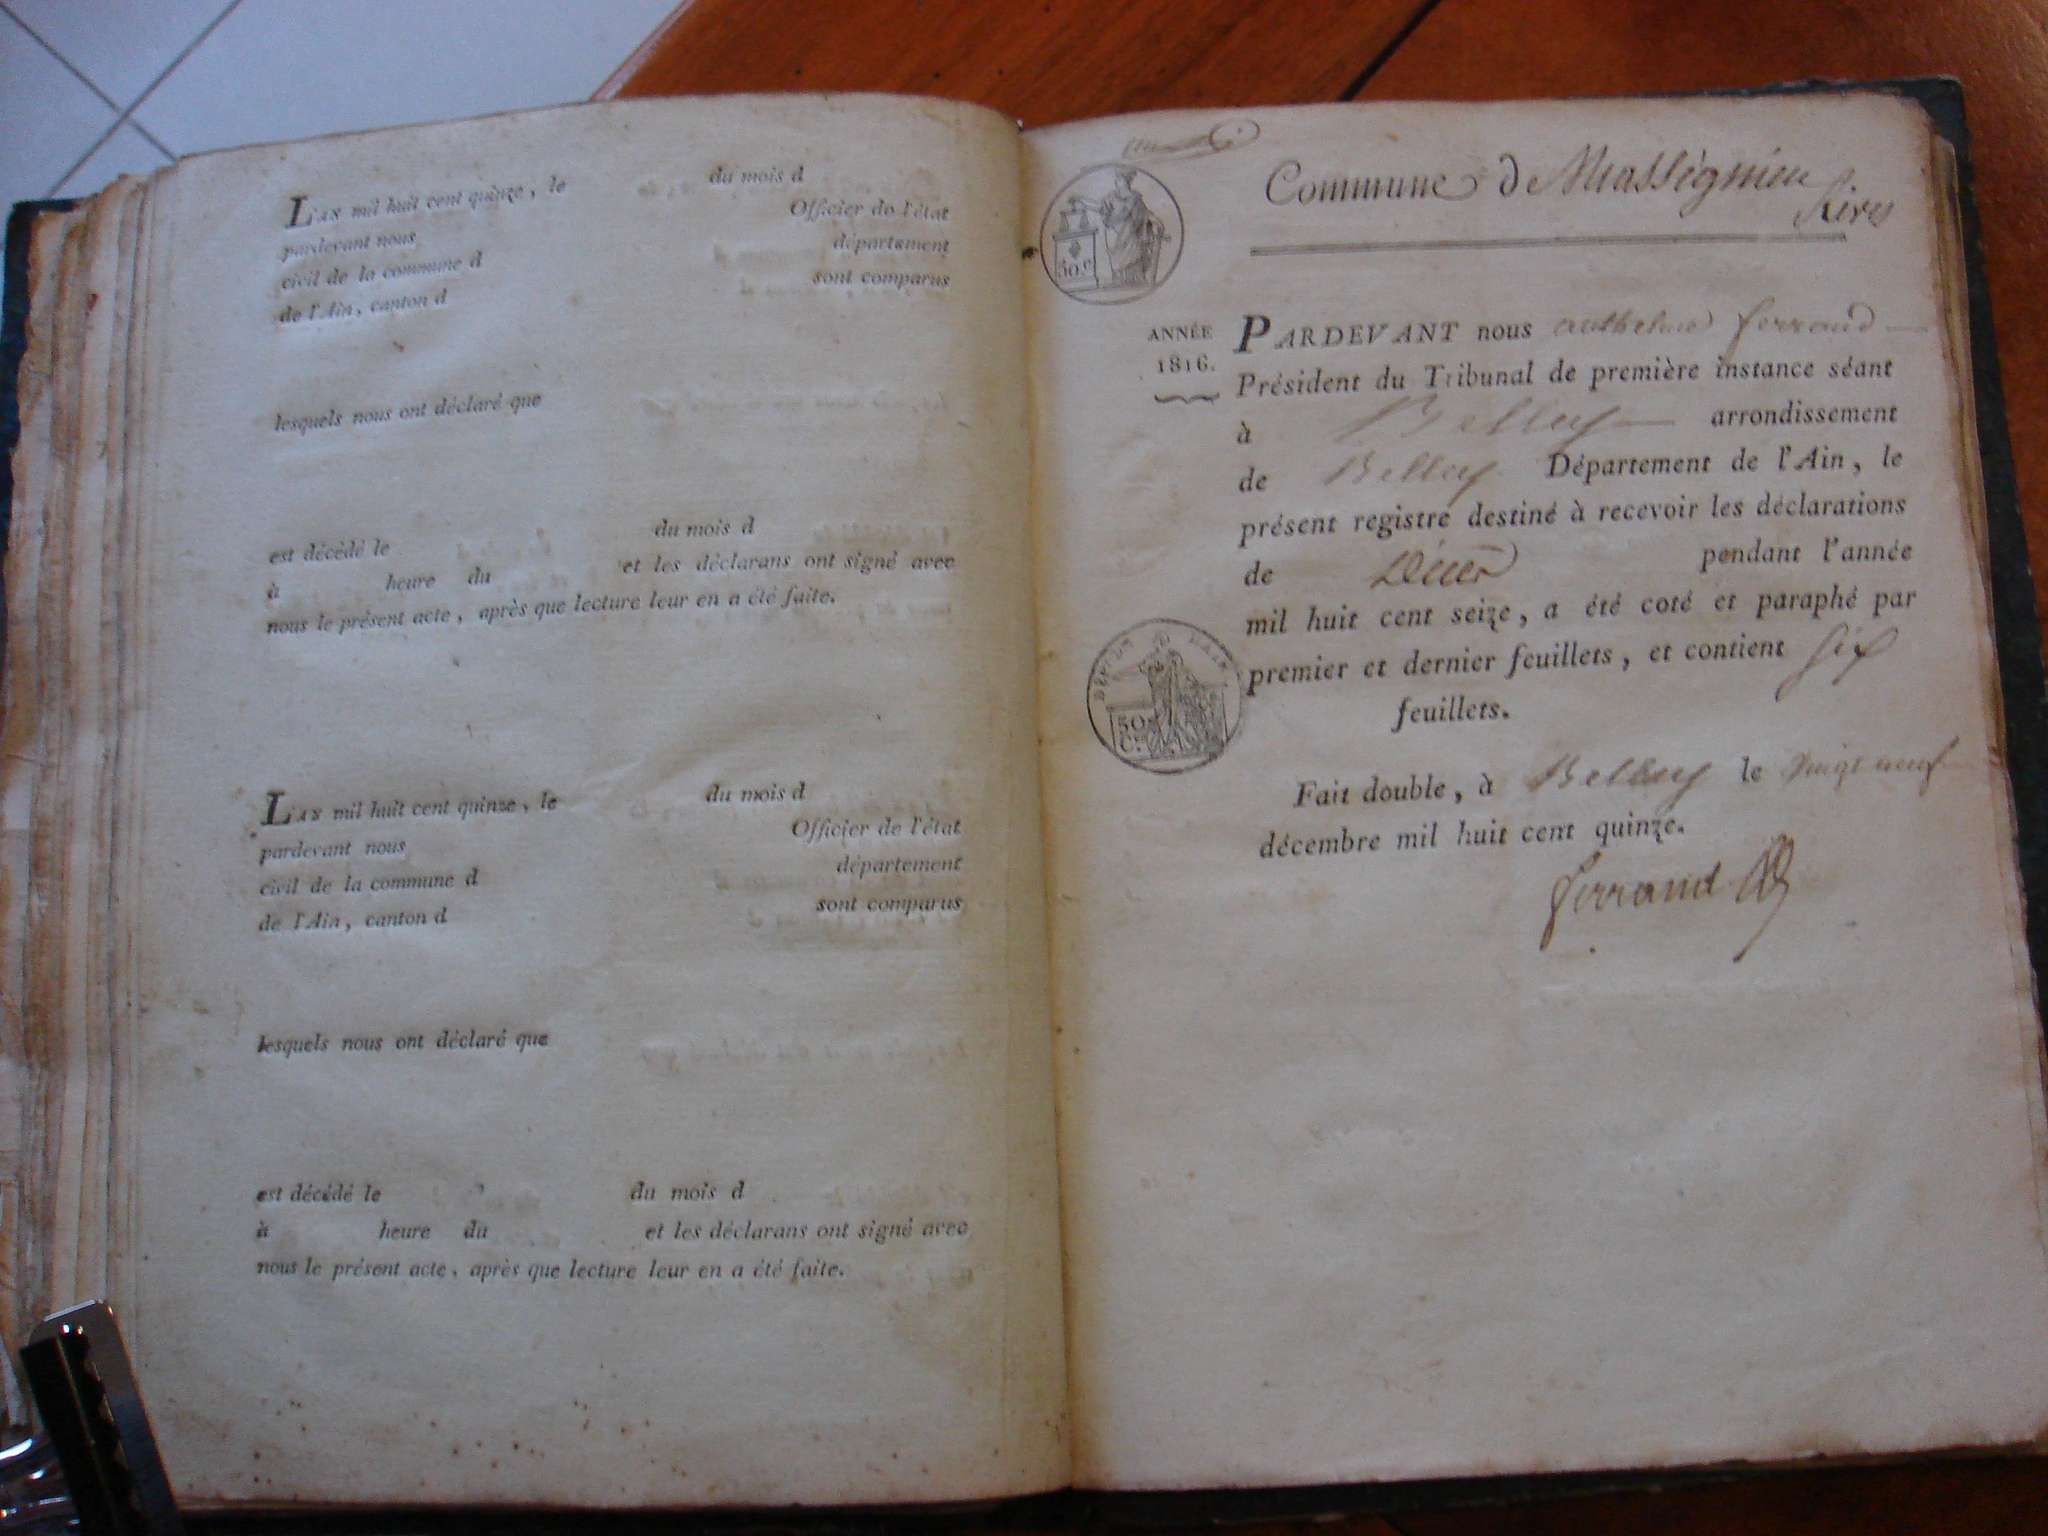 L'AN mil huit cent quinze, le du mois d
pardevant nous Officier de l'état
civil de la commune d département
de l'Ain, canton d sont comparus
lesquels nous ont déclaré que
est décédé le du mois d
à heure du et les déclarans ont signé avec
nous le présent acte, après que lecture leur en a été faite.
L'AN mil huit cent quinze, le du mois d
pardevant nous Officier de l'état
civil de la commune d département
de l'Ain, canton d sont comparus
lesquels nous ont déclaré que
est décédé le du mois d
à heure du et les déclarans ont signé avec
nous le présent acte, après que lecture leur en a été faite.
50 c
Commune de Massignieu
Rives
ANNÉE
1816.
PARDEVANT nous anthelme ferrand
Président du Tribunal de première instance séant
à Belley arrondissement
de Belley Département de l'Ain, le
présent registre destiné à recevoir les déclarations
de Décès pendant l'année
mil huit cent seize, a été coté et paraphé par
premier et dernier feuillets, et contient six
feuillets.
50
C.es
Fait double, à Belley le vingt neuf
décembre mil huit cent quinze.
ferrand